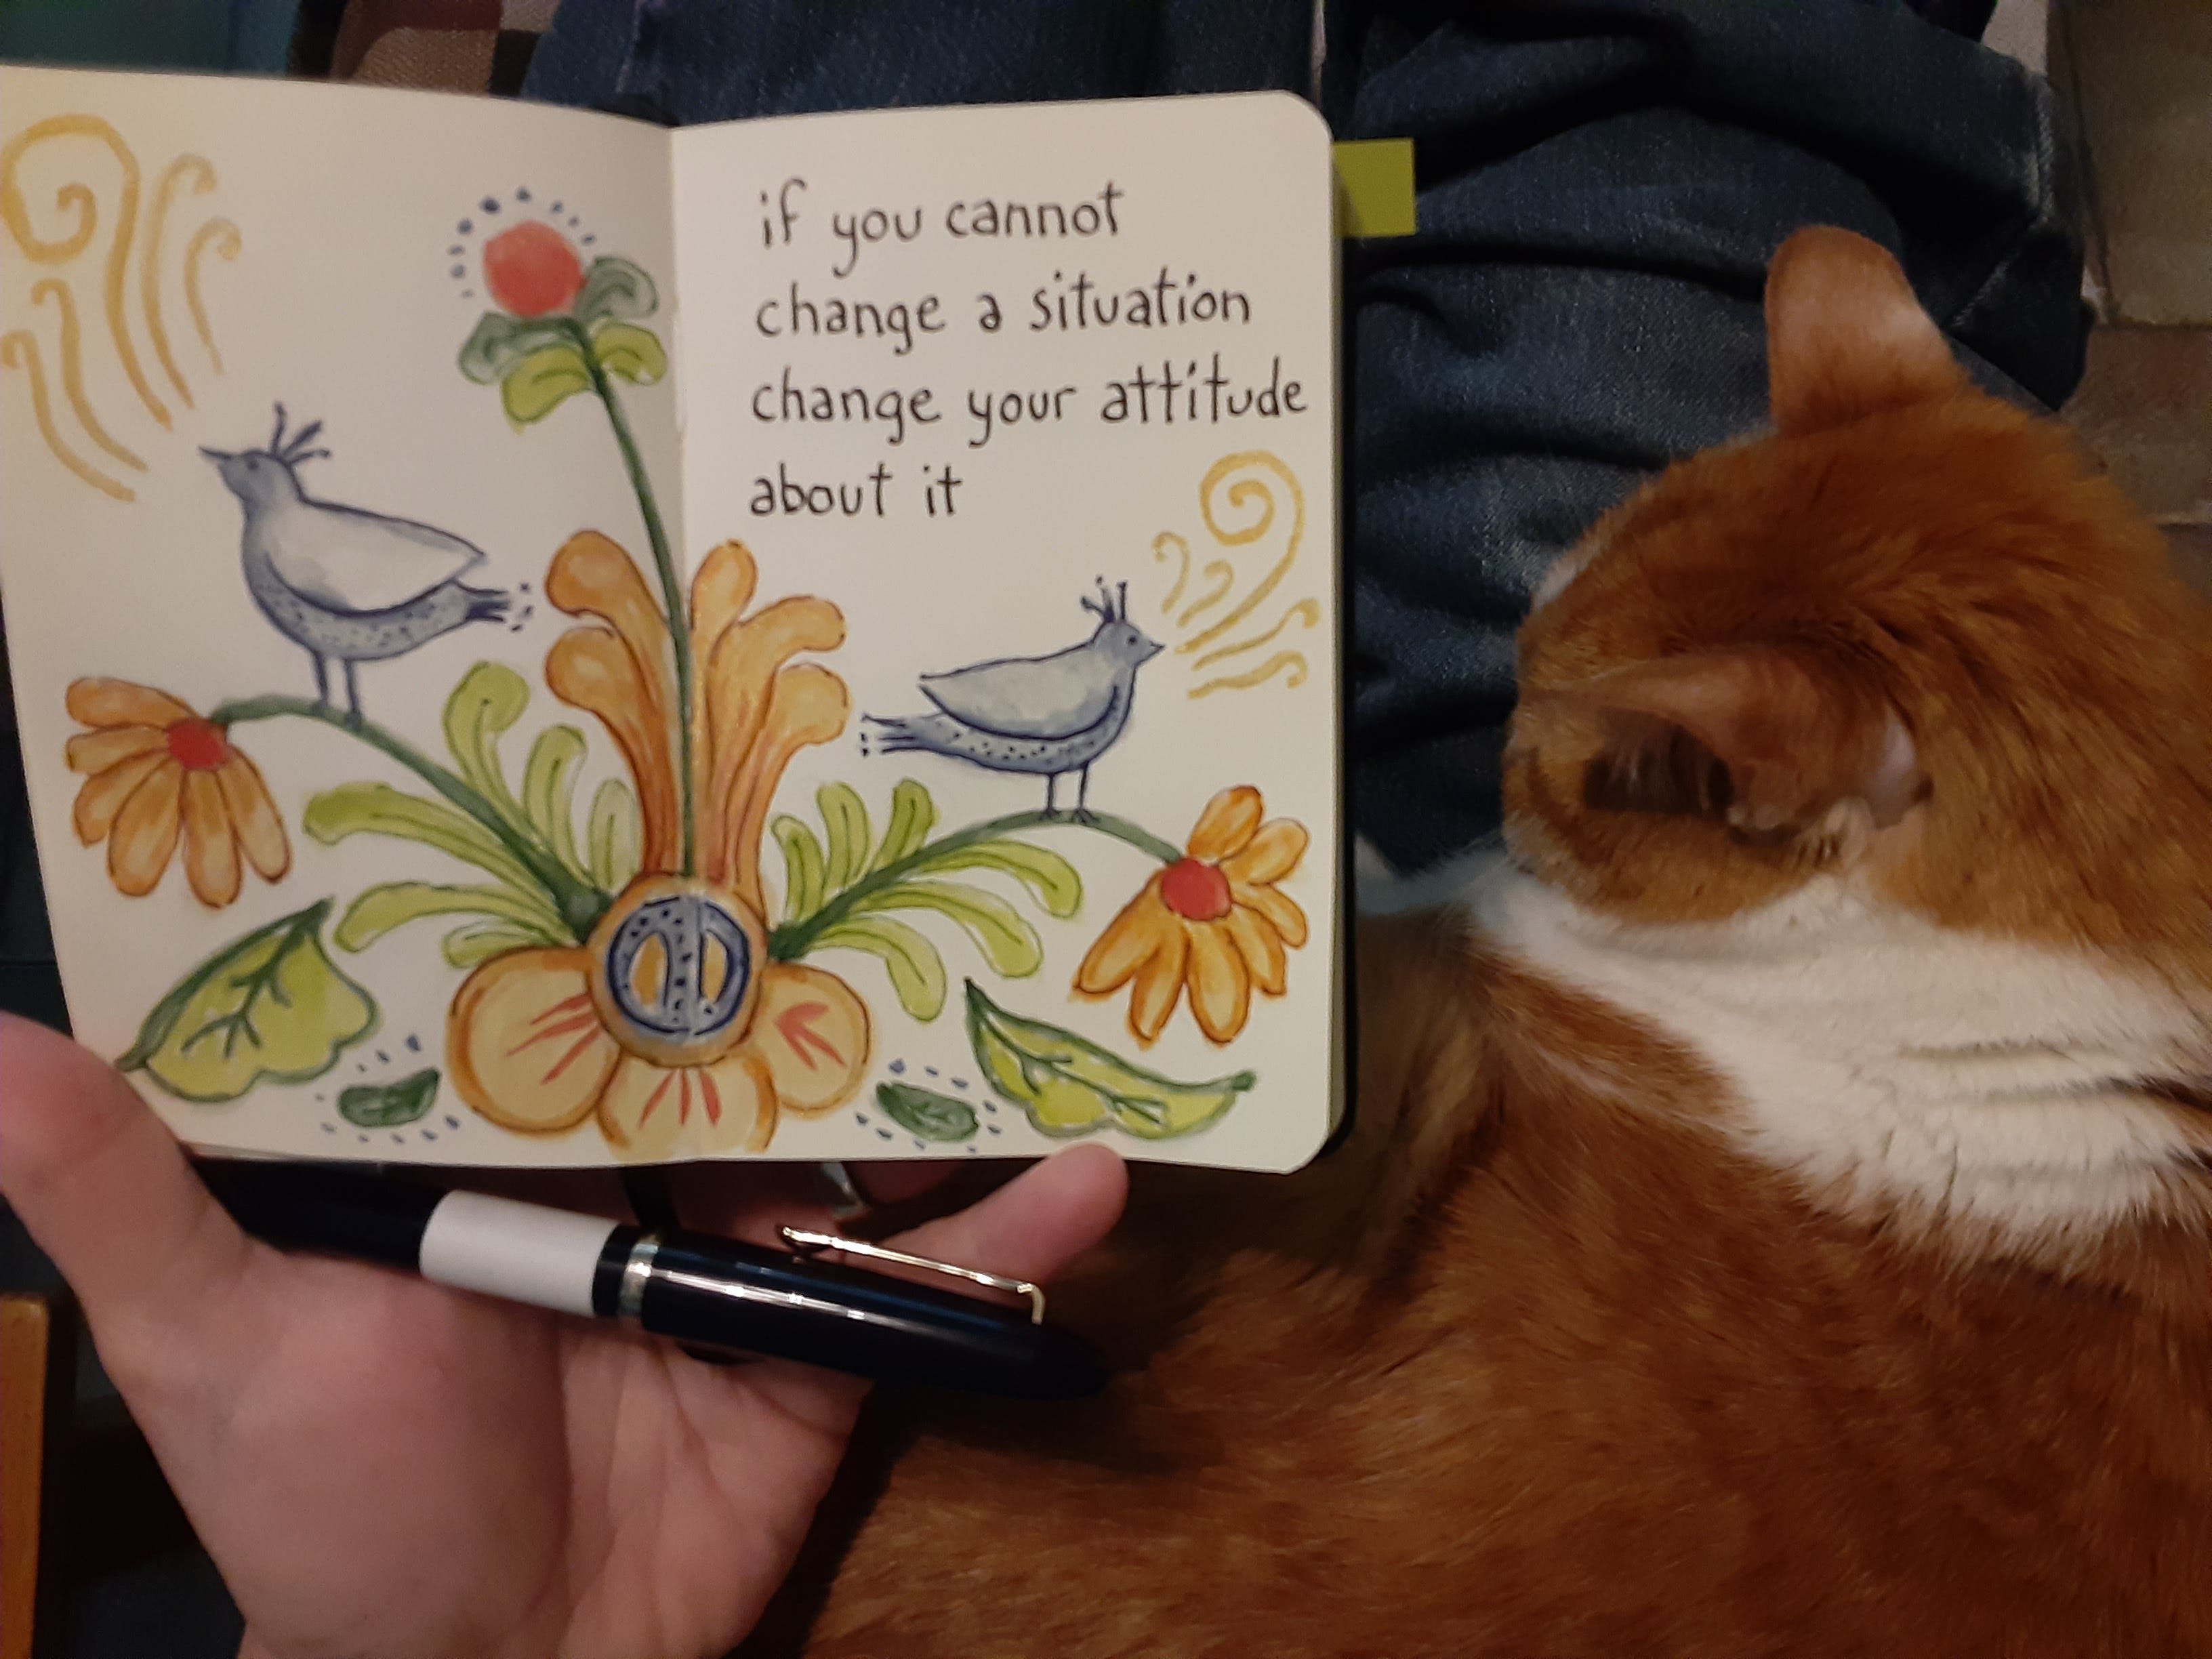 if you cannot
change a situation
change your attitude
about it